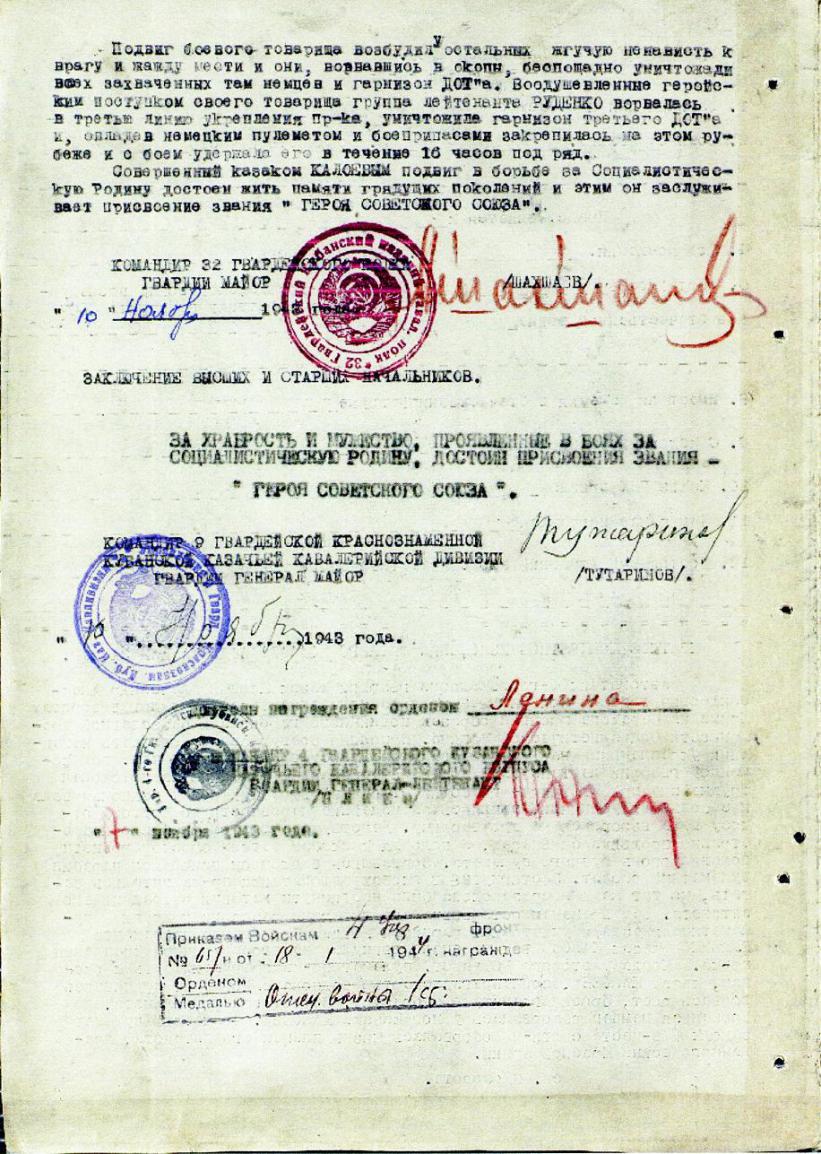 Подвиг боевого товарища возбудил у остальных жгучую ненависть к
врагу и жажду мести и они, ворвавшись в окопы, беспощадно уничтожали
всех захваченных там немцев и гарнизон ДОТ"а. Воодушевленные геройс-
ким поступком своего товарища группа лейтенанта РУДЕНКО ворвалась
в третью линию укрепления пр-ка, уничтожила гарнизон третьего ДОТ"а
и, овладев немецким пулеметом и боеприпасами закрепилась на этом ру-
беже и с боем удержала его в течение 16 часов под ряд.
Совершенный казаком КАЛОЕВЫМ подвиг в борьбе за Социалистичес-
кую Родину достоен жить памяти грядущих поколений и этим он заслужи-
вает присвоение звания " ГЕРОЯ СОВЕТСКОГО СОЮЗА".
КОМАНДИР 32 ГВАРДЕЙСКОГО
ГВАРДИИ МАЙОР /ШАХШАЕВ/.
" 10 " Ноябр 194 года
ЗАКЛЮЧЕНИЕ ВЫСШИХ И СТАРШИХ НАЧАЛЬНИКОВ.
ЗА ХРАБРОСТЬ И МУЖЕСТВО, ПРОЯВЛЕННЫЕ В БОЯХ ЗА
СОЦИАЛИСТИЧЕСКУЮ РОДИНУ, ДОСТОИН ПРИСВОЕНИЯ ЗВАНИЯ -
" ГЕРОЯ СОВЕТСКОГО СОЮЗА ".
КОМАНДИР 9 ГВАРДЕЙСКОЙ КРАСНОЗНАМЕННОЙ
КУБАНСКОЙ КАЗАЧЬЕЙ КАВАЛЕРИЙСКОЙ ДИВИЗИИ
ГВАРДИИ ГЕНЕРАЛ МАЙОР /ТУТАРИНОВ/.
" 10 " 1943 года.
награждения орденом Ленина
4 ГВАРДЕЙСКОГО КУБАНСКОГО
ГВАРДИИ ГЕНЕРАЛ-ЛЕЙТЕНАНТ
" ноября 1943 года.
Приказом Войскам 4 Укр фронт
№ н от 18 - 1 1944 г. награжде
Орденом
Медалью Отеч. Войны